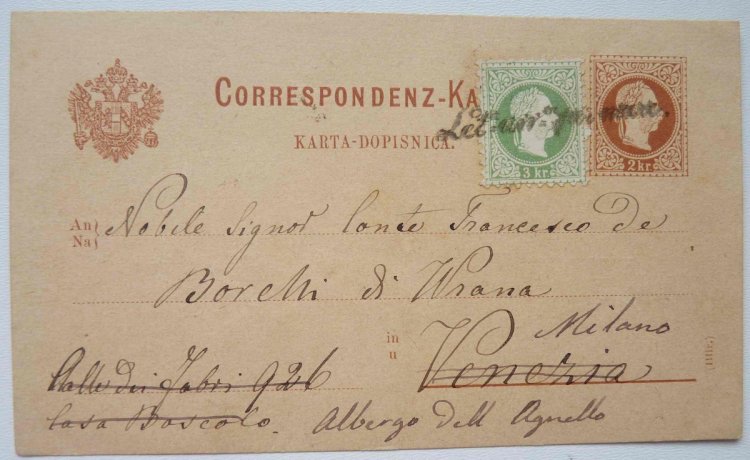 CORRESPONDENZ-KA
KARTA-DOPISNICA.
3 kr.
2 kr.
An Nobile Signor Conte Francesco de
Na
Borelli di Wrana
in Milano
u Venezia
Calle dei Fabri 926
Casa Boscolo. Albergo dell Agnello
(Illir.)